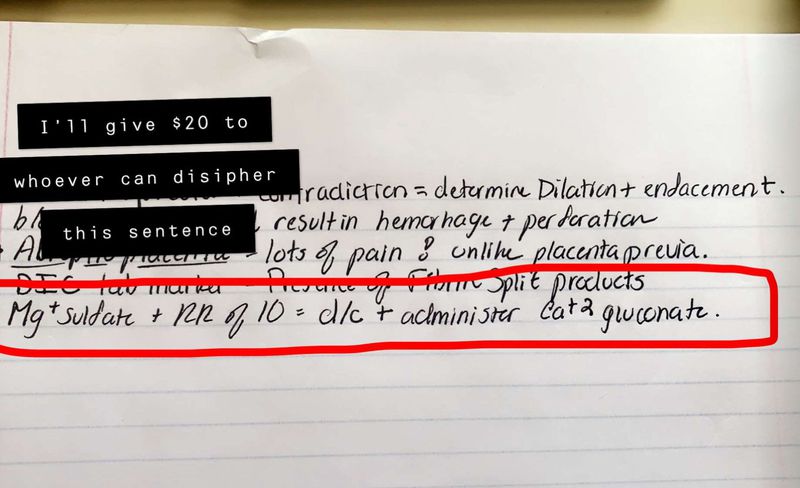 I'll give $20 to
whoever can disipher
this sentence
contradiction = determine Dilation + endacement.
bl result in hemorhage + perforation
Abruptio placenta = lots of pain ! unlike placenta previa.
DIC lab marker - Presence of Fibrin Split products
Mg+ sulfate + RR of 10 = d/c + administer Ca+2 gluconate.